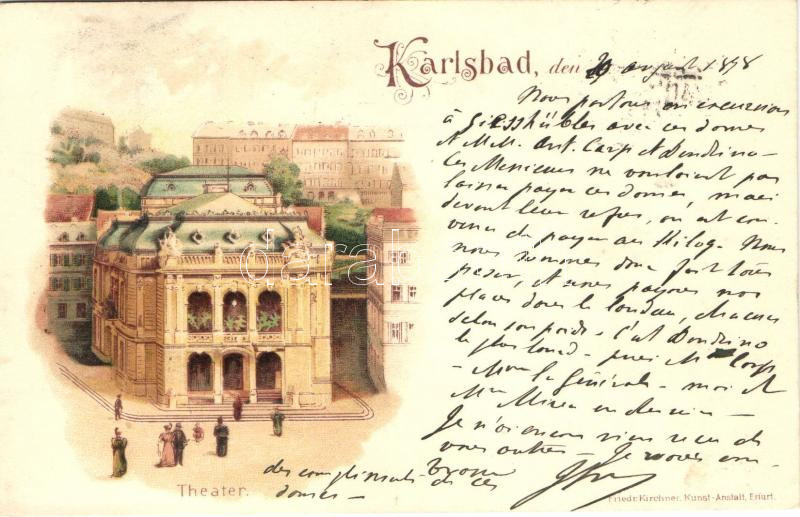 Karlsbad, den 29 august 1898
Nous partons en excursion
à Giesshübler avec ces dames
et MM. Ant. Carp et Dendrino –
Les Messieurs ne voulaient pas
laisser payer ces dames, mais
devant leur refus, on est con-
venu de payer au Kilog. Nous
nous sommes donc fait tous
peser, et nous payons nos
places dans le landau, chacun
selon son poids. C'est Dendrino
le plus lourd – puis Mr Carp
– la Générale – moi et
en dernier –
Je n'ai encore rien reçu de
vous autres – Je vous en-
des compliments de ces
dames –
Theater.
Friedr. Kirchner, Kunst-Anstalt, Erfurt.
darabanth